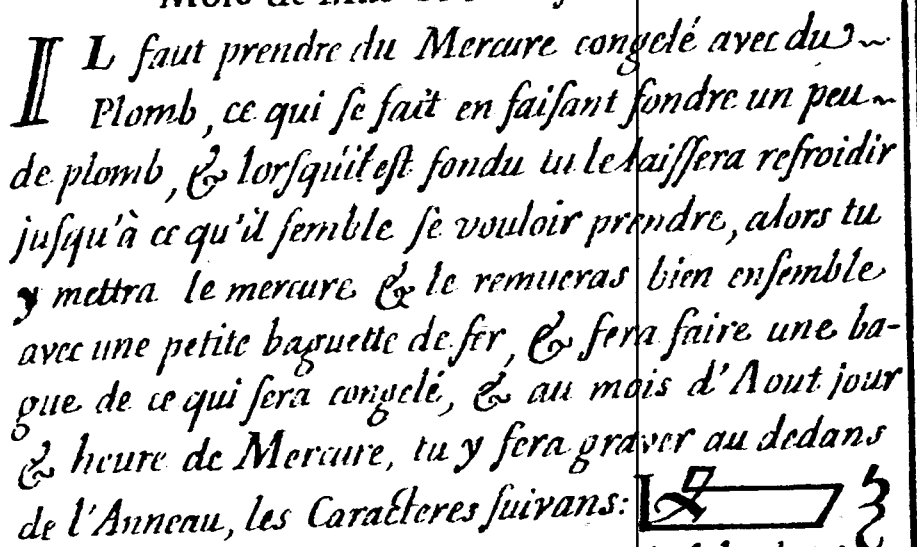 Mois de
IL faut prendre du Mercure congelé avec du
Plomb, ce qui ſe fait en faiſant fondre un peu
de plomb, & lorſqu'il eſt fondu tu le laiſſera refroidir
juſqu'à ce qu'il ſemble ſe vouloir prendre, alors tu
y mettra le mercure & le remueras bien enſemble
avec une petite baguette de fer, & fera faire une ba-
gue de ce qui ſera congelé, & au mois d'Aout jour
& heure de Mercure, tu y fera graver au dedans
de l'Anneau, les Caracteres ſuivans: